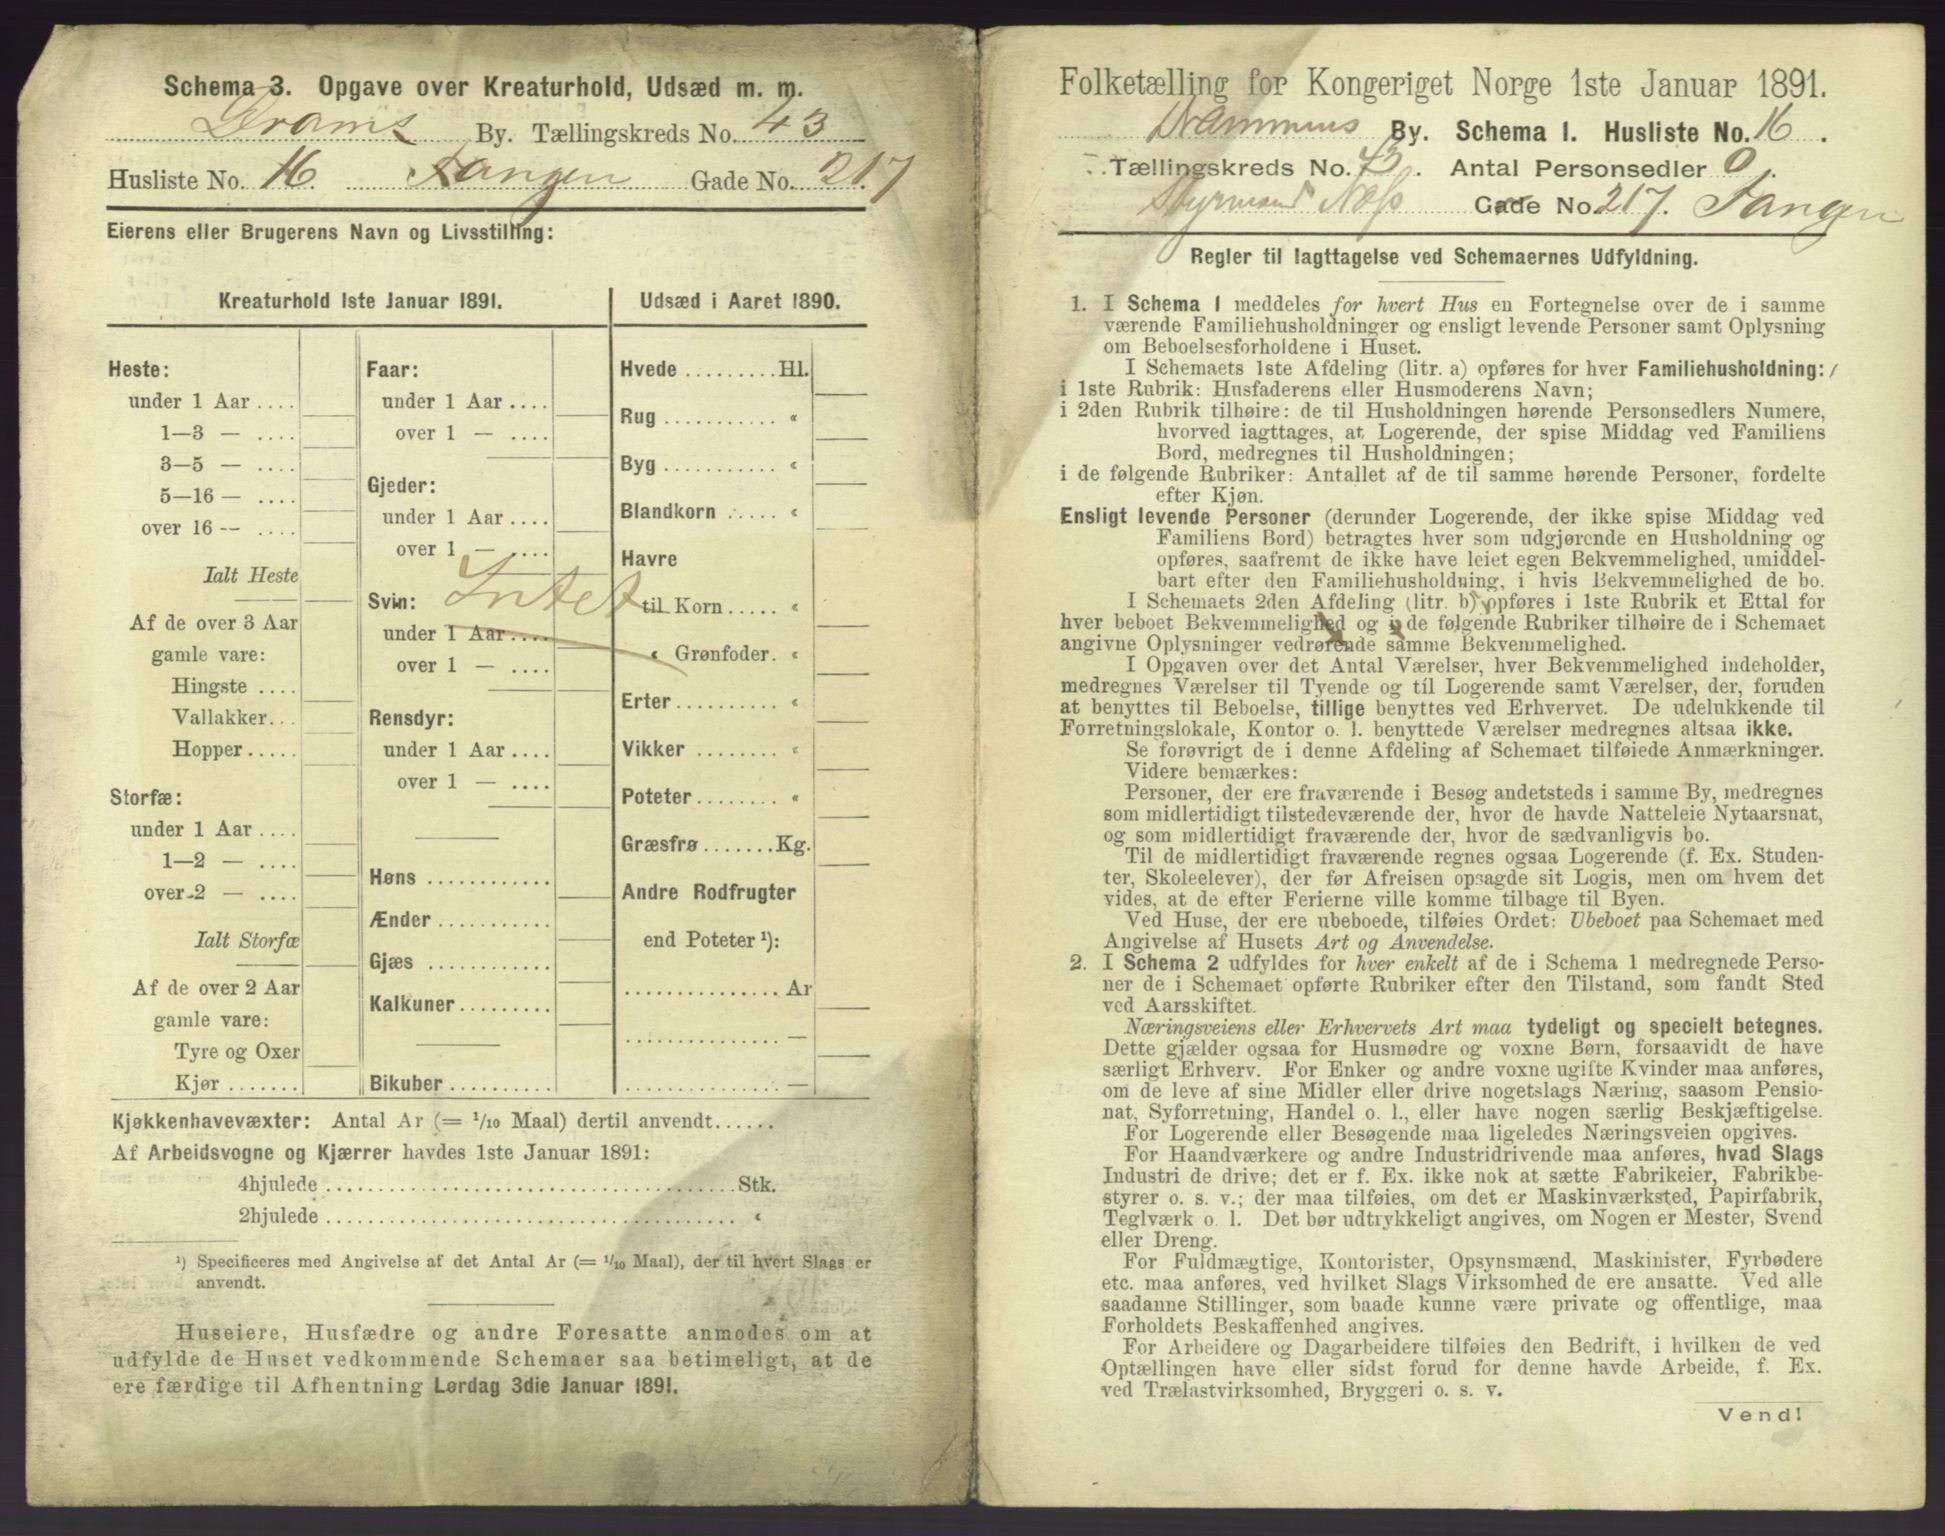 Schema 3. Opgave over Kreaturhold, Udsæd m. m.
Drams By. Tællingskreds No. 43
Husliste No. 16. Tangen Gade No. 217.
Eierens eller Brugerens Navn og Livsstilling:
Kreaturhold 1ste Januar 1891.
Heste:
under 1 Aar ....
1—3 — ....
3—5 — ....
5—16 — ....
over 16 -- ....
Ialt Heste
Af de over 3 Aar
gamle vare:
Hingste ....
Vallakker...
Hopper.....
Storfæ:
under 1 Aar ....
1—2 — ....
over 2 — ....
Ialt Storfæ
Af de over 2 Aar
gamle vare:
Tyre og Oxer
Kjør .......
Faar:
under 1 Aar ....
over 1 — ....
Gjeder:
under 1 Aar ....
over 1 — ....
Svin: Intet
under 1 Aar ....
over 1 — ....
Rensdyr:
under 1 Aar ....
over 1 — ....
Høns ............
Ænder ...........
Gjæs ............
Kalkuner.........
Bikuber..........
Udsæd i Aaret 1890.
Hvede .........Hl.
Rug ........... «
Byg ........... «
Blandkorn ..... «
Havre
til Korn..... «
« Grønfoder. «
Erter.......... «
Vikker ........ «
Poteter........ «
Græsfrø.......Kg.
Andre Rodfrugter
end Poteter ¹):
............... Ar
............... —
............... —
Kjøkkenhavevæxter: Antal Ar (= 1/10 Maal) dertil anvendt......
Af Arbeidsvogne og Kjærrer havdes 1ste Januar 1891:
4hjulede .......................................Stk.
2hjulede ....................................... «
¹) Specificeres med Angivelse af det Antal Ar (= 1/10 Maal), der til hvert Slags er
anvendt.
Huseiere, Husfædre og andre Foresatte anmodes om at
udfylde de Huset vedkommende Schemaer saa betimeligt, at de
ere færdige til Afhentning Lørdag 3die Januar 1891.
Folketælling for Kongeriget Norge 1ste Januar 1891.
Drammens By. Schema 1. Husliste No. 16.
Tællingskreds No. 43. Antal Personsedler 0.
Styrmand Næss Gade No. 217. Tangen
Regler til Iagttagelse ved Schemaernes Udfyldning.
1. I Schema 1 meddeles for hvert Hus en Fortegnelse over de i samme
værende Familiehusholdninger og ensligt levende Personer samt Oplysning
om Beboelsesforholdene i Huset.
I Schemaets 1ste Afdeling (litr. a) opføres for hver Familiehusholdning:
i 1ste Rubrik: Husfaderens eller Husmoderens Navn;
i 2den Rubrik tilhøire: de til Husholdningen hørende Personsedlers Numere,
hvorved iagttages, at Logerende, der spise Middag ved Familiens
Bord, medregnes til Husholdningen;
i de følgende Rubriker: Antallet af de til samme hørende Personer, fordelte
efter Kjøn.
Ensligt levende Personer (derunder Logerende, der ikke spise Middag ved
Familiens Bord) betragtes hver som udgjørende en Husholdning og
opføres, saafremt de ikke have leiet egen Bekvemmelighed, umiddel-
bart efter den Familiehusholdning, i hvis Bekvemmelighed de bo.
I Schemaets 2den Afdeling (litr. b) opføres i 1ste Rubrik et Ettal for
hver beboet Bekvemmelighed og i de følgende Rubriker tilhøire de i Schemaet
angivne Oplysninger vedrørende samme Bekvemmelighed.
I Opgaven over det Antal Værelser, hver Bekvemmelighed indeholder,
medregnes Værelser til Tyende og til Logerende samt Værelser, der, foruden
at benyttes til Beboelse, tillige benyttes ved Erhvervet. De udelukkende til
Forretningslokale, Kontor o. l. benyttede Værelser medregnes altsaa ikke.
Se forøvrigt de i denne Afdeling af Schemaet tilføiede Anmærkninger.
Videre bemærkes:
Personer, der ere fraværende i Besøg andetsteds i samme By, medregnes
som midlertidigt tilstedeværende der, hvor de havde Natteleie Nytaarsnat,
og som midlertidigt fraværende der, hvor de sædvanligvis bo.
Til de midlertidigt fraværende regnes ogsaa Logerende (f. Ex. Studen-
ter, Skoleelever), der før Afreisen opsagde sit Logis, men om hvem det
vides, at de efter Ferierne ville komme tilbage til Byen.
Ved Huse, der ere ubeboede, tilføies Ordet: Ubeboet paa Schemaet med
Angivelse af Husets Art og Anvendelse.
2. I Schema 2 udfyldes for hver enkelt af de i Schema 1 medregnede Perso-
ner de i Schemaet opførte Rubriker efter den Tilstand, som fandt Sted
ved Aarsskiftet.
Næringsveiens eller Erhvervets Art maa tydeligt og specielt betegnes.
Dette gjælder ogsaa for Husmødre og voxne Børn, forsaavidt de have
særligt Erhverv. For Enker og andre voxne ugifte Kvinder maa anføres,
om de leve af sine Midler eller drive nogetslags Næring, saasom Pensio-
nat, Syforretning, Handel o. l., eller have nogen særlig Beskjæftigelse.
For Logerende eller Besøgende maa ligeledes Næringsveien opgives.
For Haandværkere og andre Industridrivende maa anføres, hvad Slags
Industri de drive; det er f. Ex. ikke nok at sætte Fabrikeier, Fabrikbe-
styrer o. s. v.; der maa tilføies, om det er Maskinværksted, Papirfabrik,
Teglværk o. l. Det bør udtrykkeligt angives, om Nogen er Mester, Svend
eller Dreng.
For Fuldmægtige, Kontorister, Opsynsmænd, Maskinister, Fyrbødere
etc. maa anføres, ved hvilket Slags Virksomhed de ere ansatte. Ved alle
saadanne Stillinger, som baade kunne være private og offentlige, maa
Forholdets Beskaffenhed angives.
For Arbeidere og Dagarbeidere tilføies den Bedrift, i hvilken de ved
Optællingen have eller sidst forud for denne havde Arbeide, f. Ex.
ved Trælastvirksomhed, Bryggeri o. s. v.
Vend!